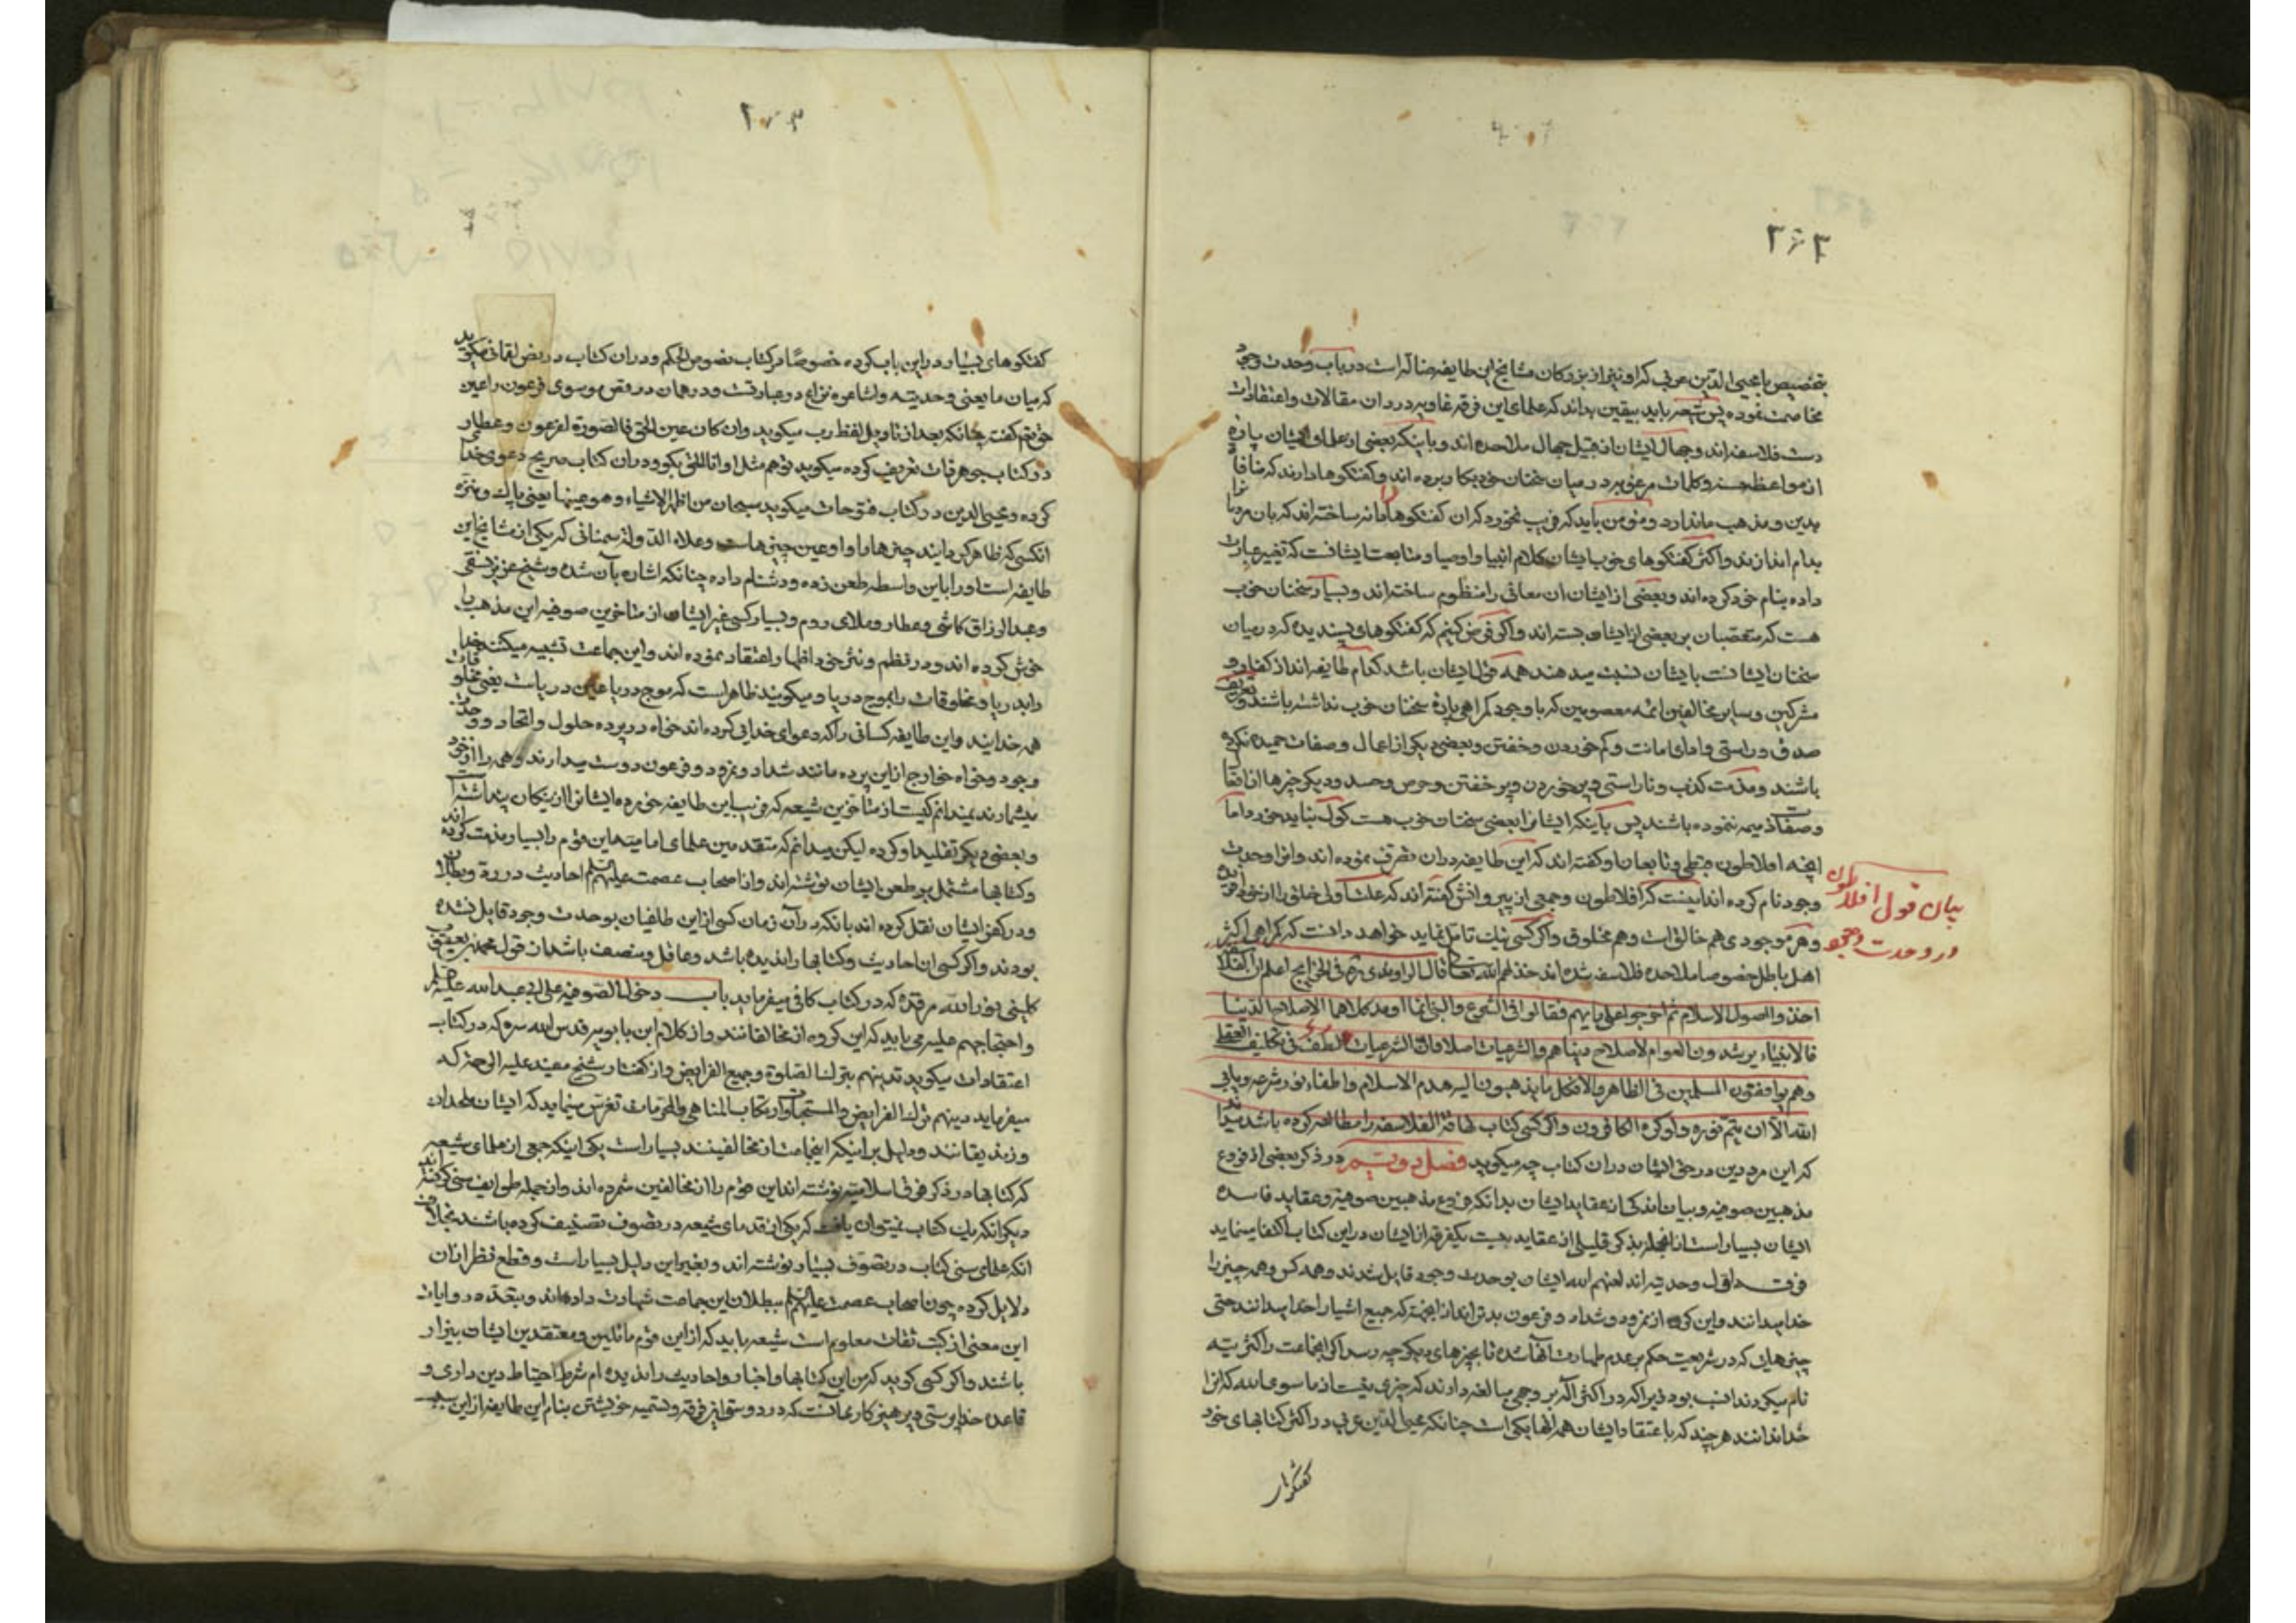 ۲۶۳
بتخصیص با محیی الدین عربی که او نیز از بزرکان مشایخ این طایفه ضاله است در باب وحدت وجود
مخاصمت نموده پس شیعه باید بیقین بداند که علمای این فرقه غاویه در دان مقالات و اعتقادات
دست فلاسفه اند و جهال ایشان از قبیل جهال ملاحده اند و با اینکه بعضی از علمای ایشان پاره
از مواعظ حسنه و کلمات مرغوبه در میان سخنان خود بکار برده اند و کفتکوها دارند که منافات
بدین و مذهب ما ندارد و مؤمن باید که فریب نخورد که ان کفتکوها دانه ساخته اند که بان مردم را
بدام اندازند و اکثر کفتکوهای خوب ایشان کلام انبیا و اوصیا و متابعت ایشانست که تغییر عبارت
داده بنام خود کرده اند و بعضی از ایشان ان معانی را منظوم ساخته اند و بسیار سخنان خوب
هست که متعصبان بر بعضی از ایشان بسته اند و اکر فرض کنیم که کفتکوهای پسندیده که در میان
سخنان ایشانست بایشان نسبت میدهند همه قول ایشان باشد کدام طایفه اند از کفار و
مشرکین و سایر مخالفین ائمه معصومین که با وجود کمراهی پاره سخنان خوب نداشته باشند و تعریف
صدق و راستی و ادای امانت و کم خوردن و خفتن و بعضی دیکر از اعمال و صفات حمیده نکرده
باشند و مذمت کذب و ناراستی و پر خوردن و پر خفتن و حرص و حسد و دیکر چیزها از افعال
و صفات ذمیمه ننموده باشند پس باینکه ایشانرا بعضی سخنان خوب هست کول نباید خورد اما
انچه افلاطون قبطی و تابعان او کفته اند که این طایفه در ان تصرف نموده اند و انرا وحدت
وجود نام کرده اند اینست که افلاطون و جمعی از پیروانش کفته اند که علت اولی خلق را از خود افریده
و هر موجودی هم خالق است و هم مخلوق و اکر کسی نیک تامل نماید خواهد دانست که کمراهی اکثر
اهل باطل خصوصا ملاحده فلاسفه شده اند خذلهم الله تعالی قال الراوندی ره فی الخرایج اعلم ان الفلاسفه
اخذوا اصول الاسلام ثم اخرجوها علی رایهم فقالوا فی الشرع و النبی انما اریدا کلاهما لاصلاح الدنیا
فالانبیاء یرشدون العوام لاصلاح دنیاهم و الشرعیات
وهم یوافقون المسلمین فی الظاهر والا فکل ما یذهبون الیه هدم الاسلام و اطفاء نور شرعه و یابی
الله الا ان یتم نوره ولو کره الکافرون و اکر کسی کتاب تهافة الفلاسفه را مطالعه کرده باشد میداند
که این مرد دین در حق ایشان دران کتاب چه میکوید فصل دویم در ذکر بعضی از فروع
مذهبین صوفیه و بیان اندکی از عقاید ایشان بدانکه فروع مذهبین صوفیه و عقاید فاسده
ایشان بسیار است از انجمله بذکر قلیلی از عقاید بیست یکفرقه از ایشان در این کتاب اکتفا مینماید
فرقه اول وحدتیه اند لعنهم الله ایشان بوحدت وجود قایل شدند و همه کس و همه چیز را
خدا میدانند و این کروه از نمرود و شداد و فرعون بدترند از انجهة که جمیع اشیا را خدا میدانند حتی
چیزهایی که در شریعت حکم بر عدم طهارت آنها شده تا بچیزهای دیکر چه رسد اکر اینجماعت را کثرتیه
نام میکردند انسب بود زیرا که در اکثر اله بر وجهی مبالغه دارند که چیزی نیست از ما سوی الله که انرا
خدا ندانند هر چند که باعتقاد ایشان همه انها یکی است چنانکه محیی الدین عربی در اکثر کتابهای خود
کفتکوها
بیان قول افلاطون
در وحدت وجود
۲۰۳
کفتکوهای بسیار در این باب کرده خصوصا در کتاب فصوص الحکم و دران کتاب در فص لقمانی میکوید
که میان ما یعنی وحدتیه و اشاعره نزاع در عبارتست و در همان در فص موسوی فرعون را عین
حق تم کفته چنانکه بعد از تاویل لفظ رب میکوید وان کان عین الحق فالصورة لفرعون و عطار
در کتاب جوهر ذات تعریف کرده میکوید تو هم مثل او انا اللهی بکو و دران کتاب صریح دعوی خدایی
کرده و محیی الدین در کتاب فتوحات میکوید سبحان من اظهر الاشیاء و هو عینها یعنی پاک و منزه
انکسی که ظاهر کردانید چیزها را و او عین چیزهاست و علاء الدوله سمنانی که یکی از مشایخ این
طایفه است او را باین واسطه طعن زده و دشنام داده چنانکه اشاره بآن شده و شیخ عزیز نسفی
و عبدالرزاق کاشی و عطار و ملای روم و بسیار کسی غیر ایشان از متاخرین صوفیه این مذهب را
خوش کرده اند و در نظم و نثر خود اظهار اعتقاد نموده اند و این جماعت تشبیه میکنند خدا
را بدریا و مخلوقات را بموج دریا و میکویند ظاهر است که موج دریا عین دریاست یعنی مخلوقات
همه خدایند و این طایفه کسانی را که دعوای خدایی کرده اند خواه در پرده حلول و اتحاد و وحدت
وجود و خواه خارج از این پرده مانند شداد و نمرود و فرعون دوست میدارند و همه را از خود
میشمارند نمیدانم کیست از متاخرین شیعه که فریب این طایفه خورده ایشانرا از نیکان پنداشته
و بعضی دیکر تقلید او کرده لیکن میدانم که متقدمین علمای امامیه این قوم را بسیار مذمت کرده اند
و کتابها مشتمل بر طعن ایشان نوشته اند و از اصحاب عصمت علیهم السلم احادیث در رد و بطلان
و در کفر ایشان نقل کرده اند بانکه در آن زمان کسی از این طاغیان بوحدت وجود قایل نشده
بودند و اکر کسی ان احادیث و کتابها را ندیده باشد و عاقل و منصف باشد از قول محمد بن یعقوب
کلینی نور الله مرقده که در کتاب کافی میفرماید باب دخول الصوفیه علی ابی عبدالله علیه السلم
و احتجاجهم علیه می یابد که این کروه از مخالفانند و از کلام ابن بابویه قدس الله سره که در کتاب
اعتقادات میکوید تدینهم بترک الصلوة و جمیع الفرایض و از کفتار شیخ مفید علیه الرحمه که
میفرماید دینهم ترک الفرایض و المستحبات و ارتکاب المناهی و المحرمات تفرس مینماید که ایشان ملحدان
و زندیقانند و دلیل بر اینکه اینجماعت از مخالفینند بسیار است یکی اینکه جمعی از علمای شیعه
که کتابها در ذکر فرق اسلامیه نوشته اند این قوم را از مخالفین شمرده اند و از جمله طوایف سنی کرفته اند
دیکر انکه یک کتاب نمیتوان یافت که یکی از قدمای شیعه در تصوف تصنیف کرده باشد بخلاف
انکه علمای سنی کتاب در تصوف بسیار نوشته اند و بغیر این دلیل بسیار است و قطع نظر از ان
دلایل کرده چون اصحاب عصمت علیهم السلم ببطلان این جماعت شهادت داده اند و
این معنی از کتب ثقات معلوم است شیعه باید که از این قوم ما ئلین و معتقدین ایشان بیزار
باشند و اکر کسی کوید که من این کتابها و اخبار و احادیث را ندیده ام شرط احتیاط دین داری و
قاعده خداپرستی و پرهیزکاری